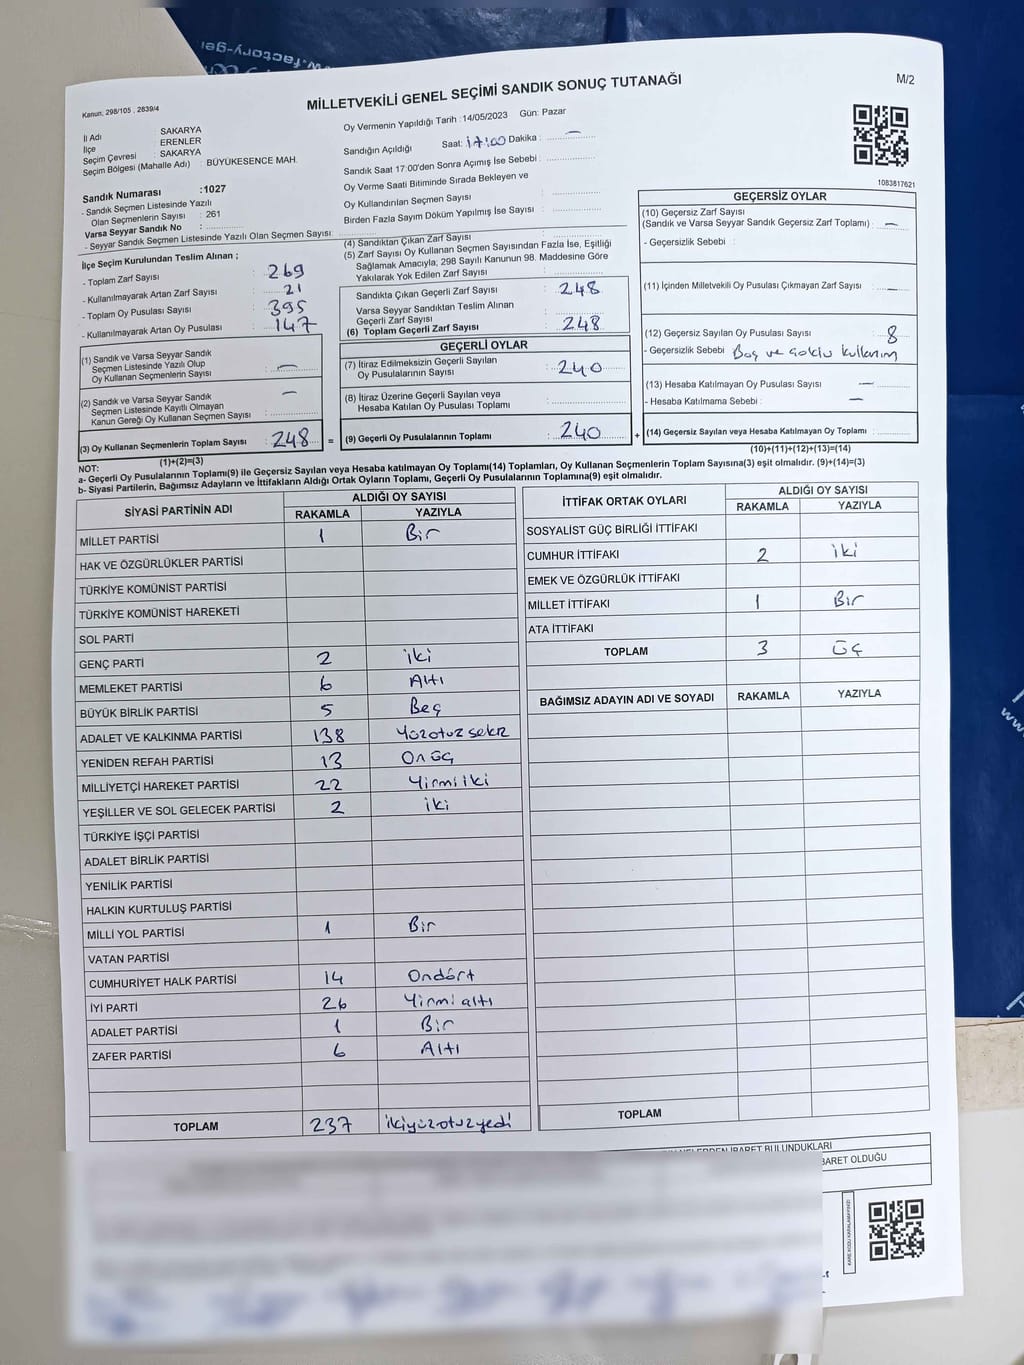 MİLLETVEKİLİ GENEL SEÇİMİ SANDIK SONUÇ TUTANAĞI
M/2
Kanun, 298/105 , 2839/4
İl Adı SAKARYA
İlçe ERENLER
Seçim Çevresi : SAKARYA
Seçim Bölgesi (Mahalle Adı) : BÜYÜKESENCE MAH.
Oy Vermenin Yapıldığı Tarih : 14/05/2023 Gün: Pazar
Sandığın Açıldığı Saat: 17:00 Dakika : —
Sandık Saat 17:00'den Sonra Açımış İse Sebebi :
Oy Verme Saati Bitiminde Sırada Bekleyen ve
Oy Kullandırılan Seçmen Sayısı :
Birden Fazla Sayım Döküm Yapılmış İse Sayısı :
1083817621
Sandık Numarası : 1027
- Sandık Seçmen Listesinde Yazılı
Olan Seçmenlerin Sayısı : 261
Varsa Seyyar Sandık No :
- Seyyar Sandık Seçmen Listesinde Yazılı Olan Seçmen Sayısı:
İlçe Seçim Kurulundan Teslim Alınan ;
- Toplam Zarf Sayısı : 269
- Kullanılmayarak Artan Zarf Sayısı : 21
- Toplam Oy Pusulası Sayısı : 395
- Kullanılmayarak Artan Oy Pusulası : 147
(1) Sandık ve Varsa Seyyar Sandık
Seçmen Listesinde Yazılı Olup
Oy Kullanan Seçmenlerin Sayısı : —
(2) Sandık ve Varsa Seyyar Sandık
Seçmen Listesinde Kayıtlı Olmayan
Kanun Gereği Oy Kullanan Seçmen Sayısı : —
(3) Oy Kullanan Seçmenlerin Toplam Sayısı : 248 =
(1)+(2)=(3)
(4) Sandıktan Çıkan Zarf Sayısı :
(5) Zarf Sayısı Oy Kullanan Seçmen Sayısından Fazla İse, Eşitliği
Sağlamak Amacıyla; 298 Sayılı Kanunun 98. Maddesine Göre
Yakılarak Yok Edilen Zarf Sayısı :
Sandıkta Çıkan Geçerli Zarf Sayısı : 248
Varsa Seyyar Sandıktan Teslim Alınan
Geçerli Zarf Sayısı :
(6) Toplam Geçerli Zarf Sayısı : 248
GEÇERLİ OYLAR
(7) İtiraz Edilmeksizin Geçerli Sayılan
Oy Pusulalarının Sayısı : 240
(8) İtiraz Üzerine Geçerli Sayılan veya
Hesaba Katılan Oy Pusulası Toplamı :
(9) Geçerli Oy Pusulalarının Toplamı : 240 +
GEÇERSİZ OYLAR
(10) Geçersiz Zarf Sayısı
(Sandık ve Varsa Seyyar Sandık Geçersiz Zarf Toplamı) : —
- Geçersizlik Sebebi :
(11) İçinden Milletvekili Oy Pusulası Çıkmayan Zarf Sayısı : —
(12) Geçersiz Sayılan Oy Pusulası Sayısı : 8
- Geçersizlik Sebebi : Boş ve çoklu kullanım
(13) Hesaba Katılmayan Oy Pusulası Sayısı : —
- Hesaba Katılmama Sebebi : —
(14) Geçersiz Sayılan veya Hesaba Katılmayan Oy Toplamı :
(10)+(11)+(12)+(13)=(14)
NOT:
a- Geçerli Oy Pusulalarının Toplamı(9) ile Geçersiz Sayılan veya Hesaba katılmayan Oy Toplamı(14) Toplamları, Oy Kullanan Seçmenlerin Toplam Sayısına(3) eşit olmalıdır. (9)+(14)=(3)
b- Siyasi Partilerin, Bağımsız Adayların ve İttifakların Aldığı Ortak Oyların Toplamı, Geçerli Oy Pusulalarının Toplamına(9) eşit olmalıdır.
SİYASİ PARTİNİN ADI ALDIĞI OY SAYISI
RAKAMLA YAZIYLA
MİLLET PARTİSİ 1 Bir
HAK VE ÖZGÜRLÜKLER PARTİSİ
TÜRKİYE KOMÜNİST PARTİSİ
TÜRKİYE KOMÜNİST HAREKETİ
SOL PARTİ
GENÇ PARTİ 2 iki
MEMLEKET PARTİSİ 6 Altı
BÜYÜK BİRLİK PARTİSİ 5 Beş
ADALET VE KALKINMA PARTİSİ 138 Yüzotuz sekiz
YENİDEN REFAH PARTİSİ 13 On üç
MİLLİYETÇİ HAREKET PARTİSİ 22 Yirmi iki
YEŞİLLER VE SOL GELECEK PARTİSİ 2 iki
TÜRKİYE İŞÇİ PARTİSİ
ADALET BİRLİK PARTİSİ
YENİLİK PARTİSİ
HALKIN KURTULUŞ PARTİSİ
MİLLİ YOL PARTİSİ 1 Bir
VATAN PARTİSİ
CUMHURİYET HALK PARTİSİ 14 Ondört
İYİ PARTİ 26 Yirmi altı
ADALET PARTİSİ 1 Bir
ZAFER PARTİSİ 6 Altı
TOPLAM 237 ikiyüzotuzyedi
İTTİFAK ORTAK OYLARI ALDIĞI OY SAYISI
RAKAMLA YAZIYLA
SOSYALİST GÜÇ BİRLİĞİ İTTİFAKI
CUMHUR İTTİFAKI 2 iki
EMEK VE ÖZGÜRLÜK İTTİFAKI
MİLLET İTTİFAKI 1 Bir
ATA İTTİFAKI
TOPLAM 3 üç
BAĞIMSIZ ADAYIN ADI VE SOYADI RAKAMLA YAZIYLA
TOPLAM
İBARET BULUNDUKLARI
BARET OLDUĞU